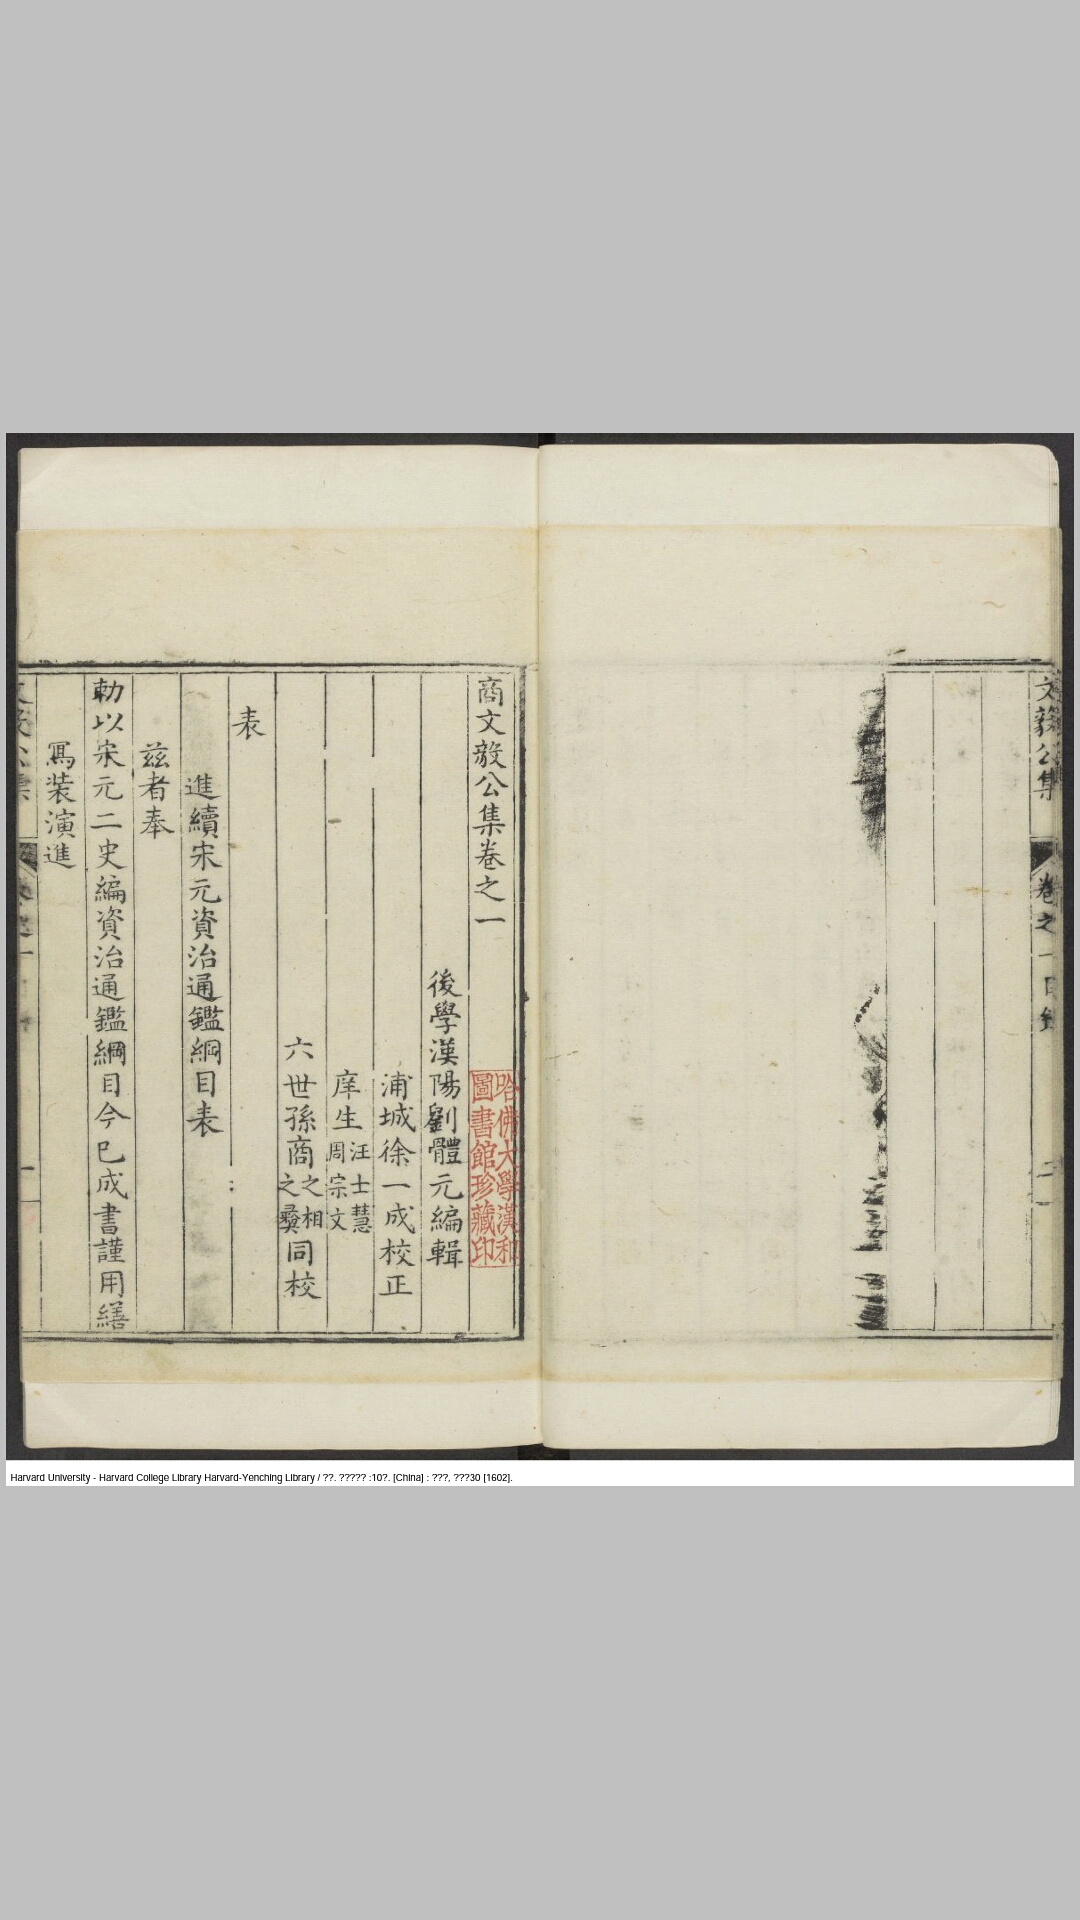 文毅公集
卷之一目錄
二
商文毅公集卷之一
後學漢陽劉體元編輯
浦城徐一成校正
庠生汪士慧周宗文
六世孫商之相之彝同校
表
進續宋元資治通鑑綱目表
茲者奉
勅以宋元二史編資治通鑑綱目今已成書謹用繕
寫装演進
哈佛大學漢和
圖書館珍藏印
Harvard University - Harvard College Library Harvard-Yenching Library / ??. ????? :10?. [China] : ???, ???30 [1602].